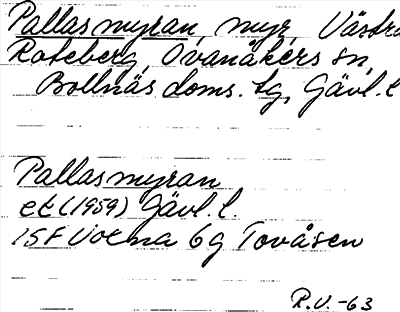 Pallasmyran, myr, Västra
Roteberg, Ovanåkers sn,
Bollnäs doms. tg, Gävl. l
Pallasmyran
ek (1959) Gävl. l.
15F Voxna 6g Tovåsen
R.U. -63